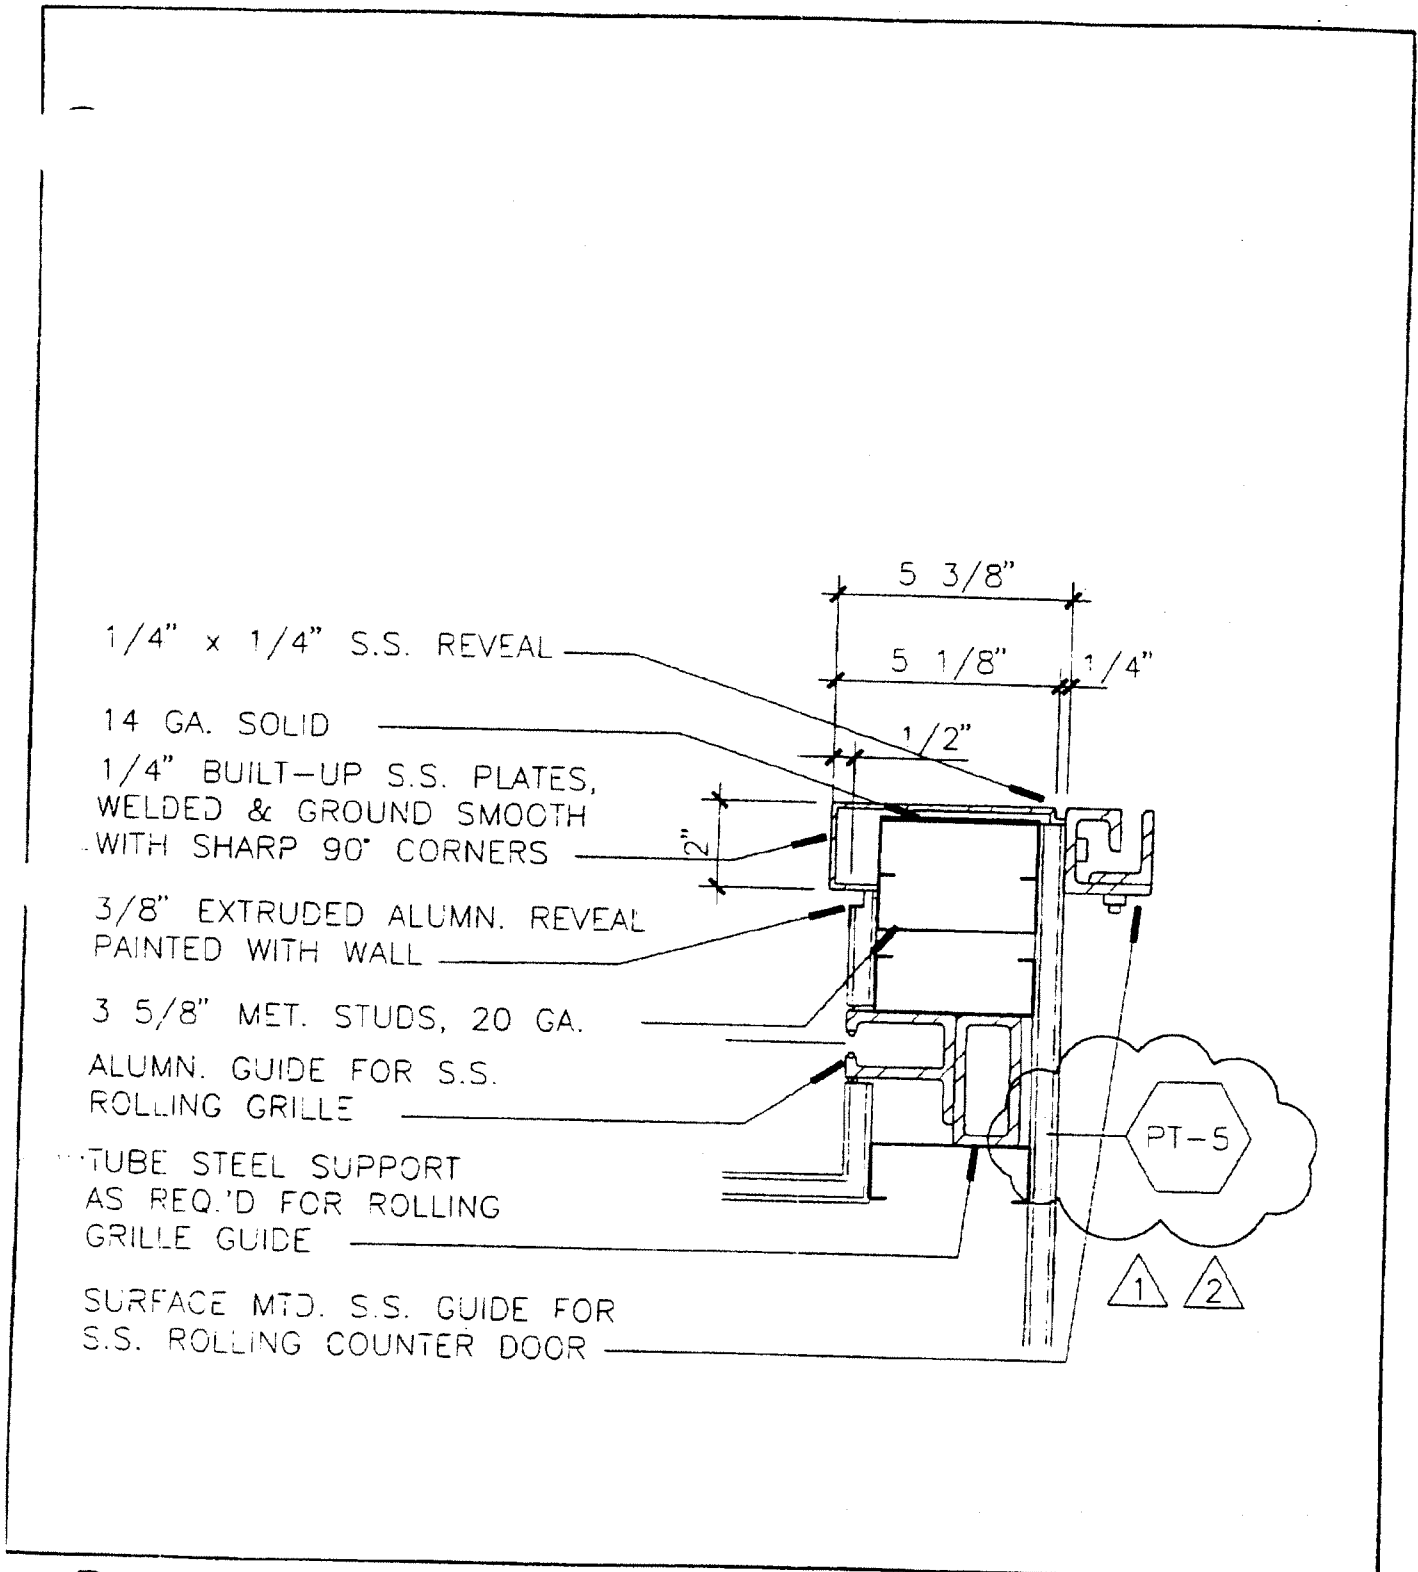 5 3/8"
5 1/8"
1/4"
1/2"
2"
1/4" x 1/4" S.S. REVEAL
14 GA. SOLID
1/4" BUILT-UP S.S. PLATES,
WELDED & GROUND SMOOTH
WITH SHARP 90° CORNERS
3/8" EXTRUDED ALUMN. REVEAL
PAINTED WITH WALL
3 5/8" MET. STUDS, 20 GA.
ALUMN. GUIDE FOR S.S.
ROLLING GRILLE
TUBE STEEL SUPPORT
AS REQ.'D FOR ROLLING
GRILLE GUIDE
SURFACE MTD. S.S. GUIDE FOR
S.S. ROLLING COUNTER DOOR
PT-5
1
2